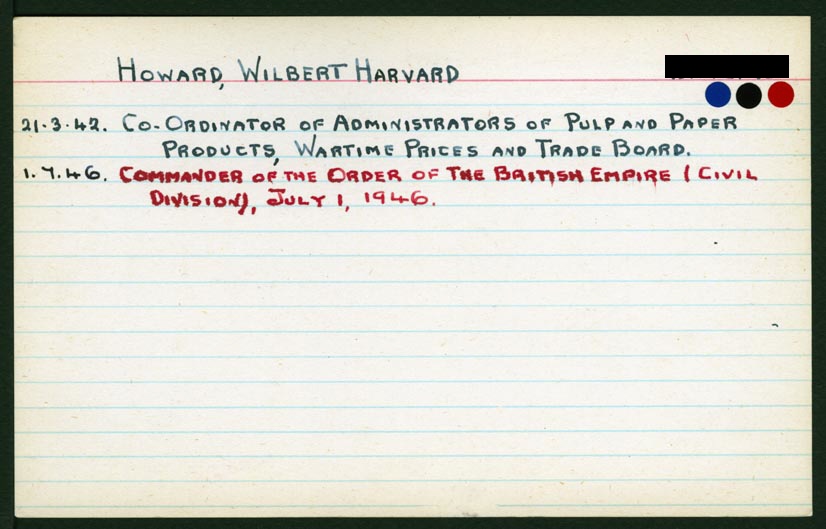 HOWARD, WILBERT HARVARD
21.3.42. CO-ORDINATOR OF ADMINISTRATORS OF PULP AND PAPER
PRODUCTS, WARTIME PRICES AND TRADE BOARD.
1.7.46. COMMANDER OF THE ORDER OF THE BRITISH EMPIRE (CIVIL
DIVISION), JULY 1, 1946.